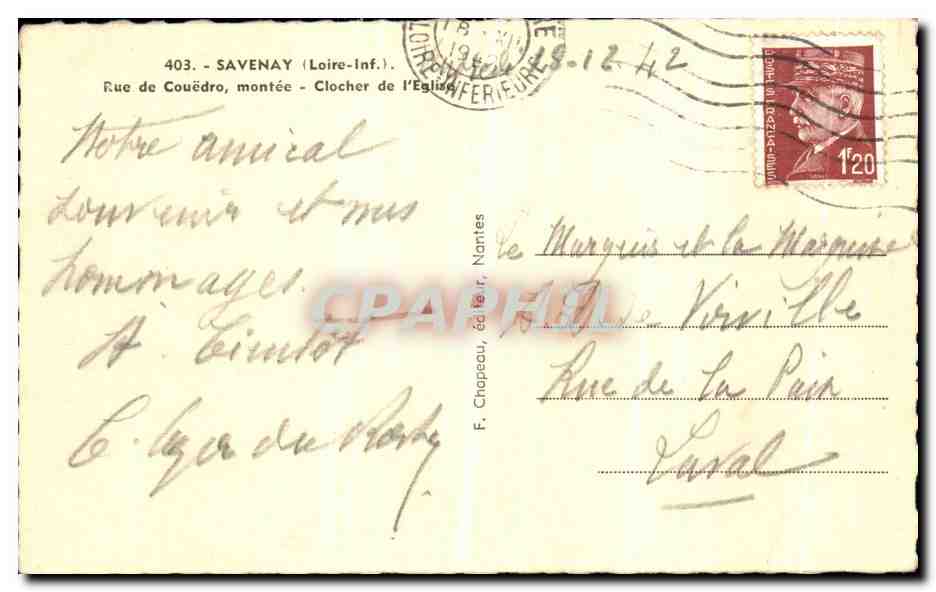 403. - SAVENAY (Loire-Inf.).
Rue de Couëdro, montée - Clocher de l'Eglise
LOIRE INFERIEURE
18 XII
1942
18-12 42
POSTES FRANÇAISES
1F20
Notre amical
souvenir et mes
hommages.
A bientôt
F. Chapeau, éditeur, Nantes
CPAPHIL
Le Marquis et la Marquise
de Virville
Rue de la Paix
Laval